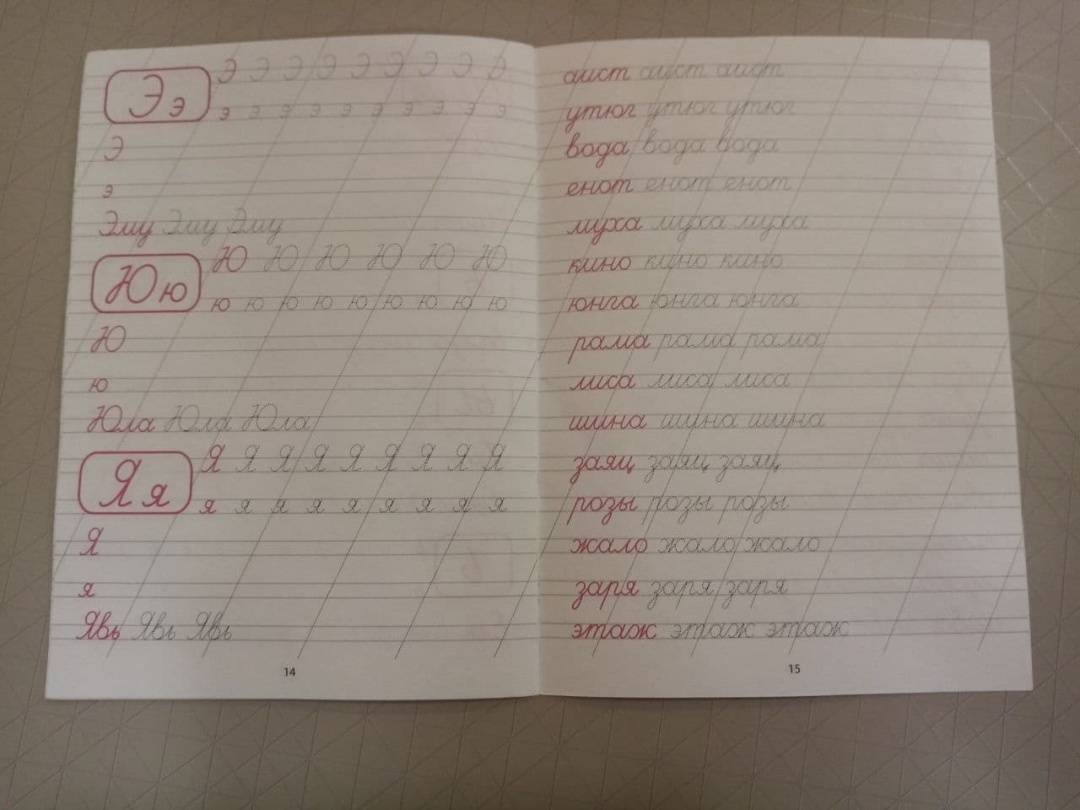 Э э Э Э Э Э Э Э Э Э Э
э э э э э э э э э э
Э
э
Эму Эму Эму
Ю ю Ю Ю Ю Ю Ю Ю
ю ю ю ю ю ю ю ю ю
Ю
ю
Юла Юла Юла
Я я Я Я Я Я Я Я Я Я Я
я я я я я я я я я
Я
я
Явь Явь Явь
14
аист аист аист
утюг утюг утюг
вода вода вода
енот енот енот
муха муха муха
кино кино кино
юнга юнга юнга
рама рама рама
лиса лиса лиса
шина шина шина
заяц заяц заяц
розы розы розы
жало жало жало
заря заря заря
этаж этаж этаж
15